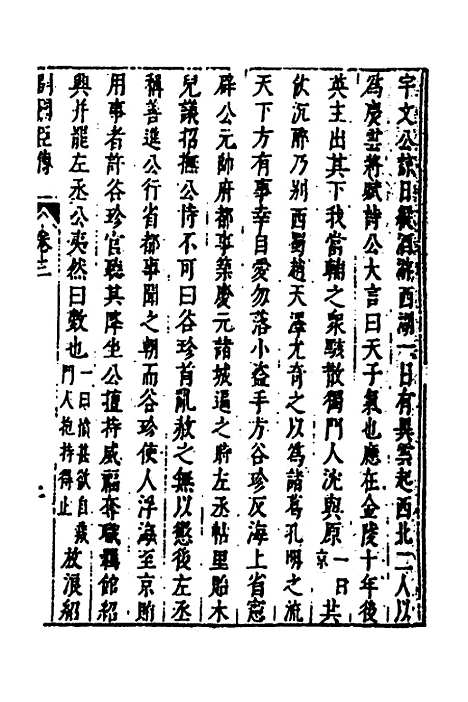 宇文公諒日縱酒遊西湖一日有異雲起西北二人以
爲慶雲將賦詩公大言曰天子氣也應在金陵十年後
英主出其下我當輔之衆駭散獨門人沈與原一曰京共
飲沉醉乃别西蜀趙天澤尤奇之以爲諸葛孔明之流
天下方有事幸自愛勿落小盗手方谷珍反海上省憲
辟公元帥府都事築慶元諸城逼之時左丞帖里貼木
兒議招撫公持不可曰谷珍首亂赦之無以懲後左丞
稱善進公行省都事聞之朝而谷珍使人浮海至京賄
用事者許谷珍官聽其降坐公擅持威福奪職羈館紹
興并罷左丞公夷然曰數也一曰憤甚欲自殺門人抱持得止放浪紹
名臣傳 卷十三